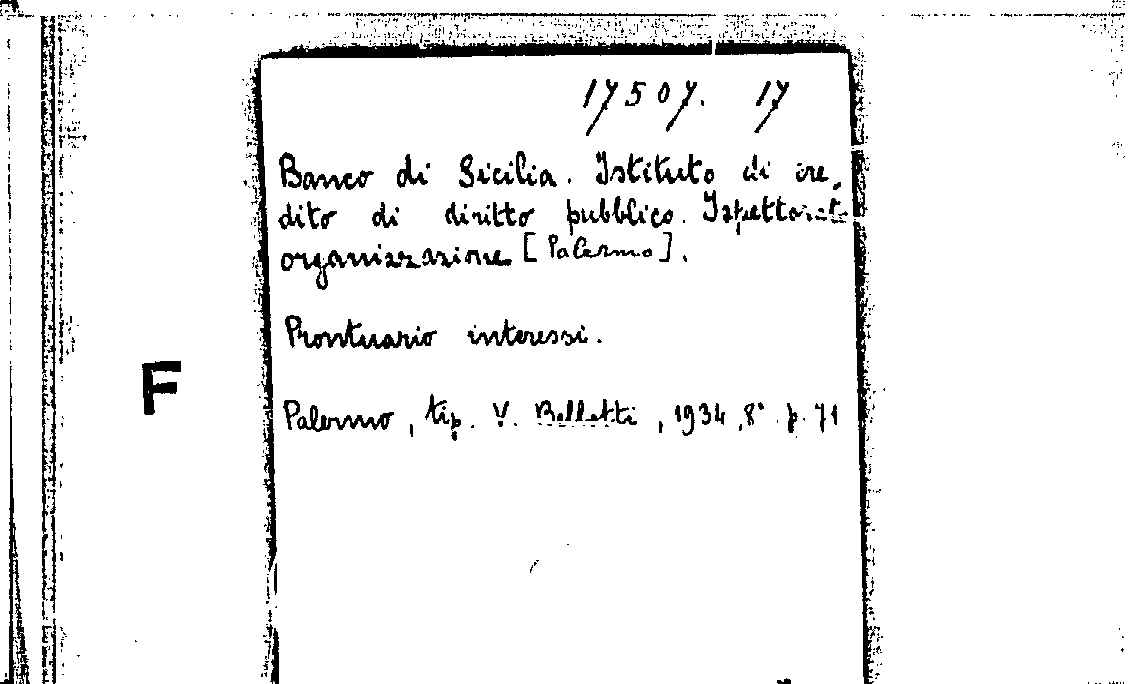 17507. 17
Banco di Sicilia. Istituto di cre-
dito di diritto pubblico. Ispettorato
organizzazione [Palermo].
Prontuario interessi.
F
Palermo, tip. V. Bellotti, 1934, 8° p. 71